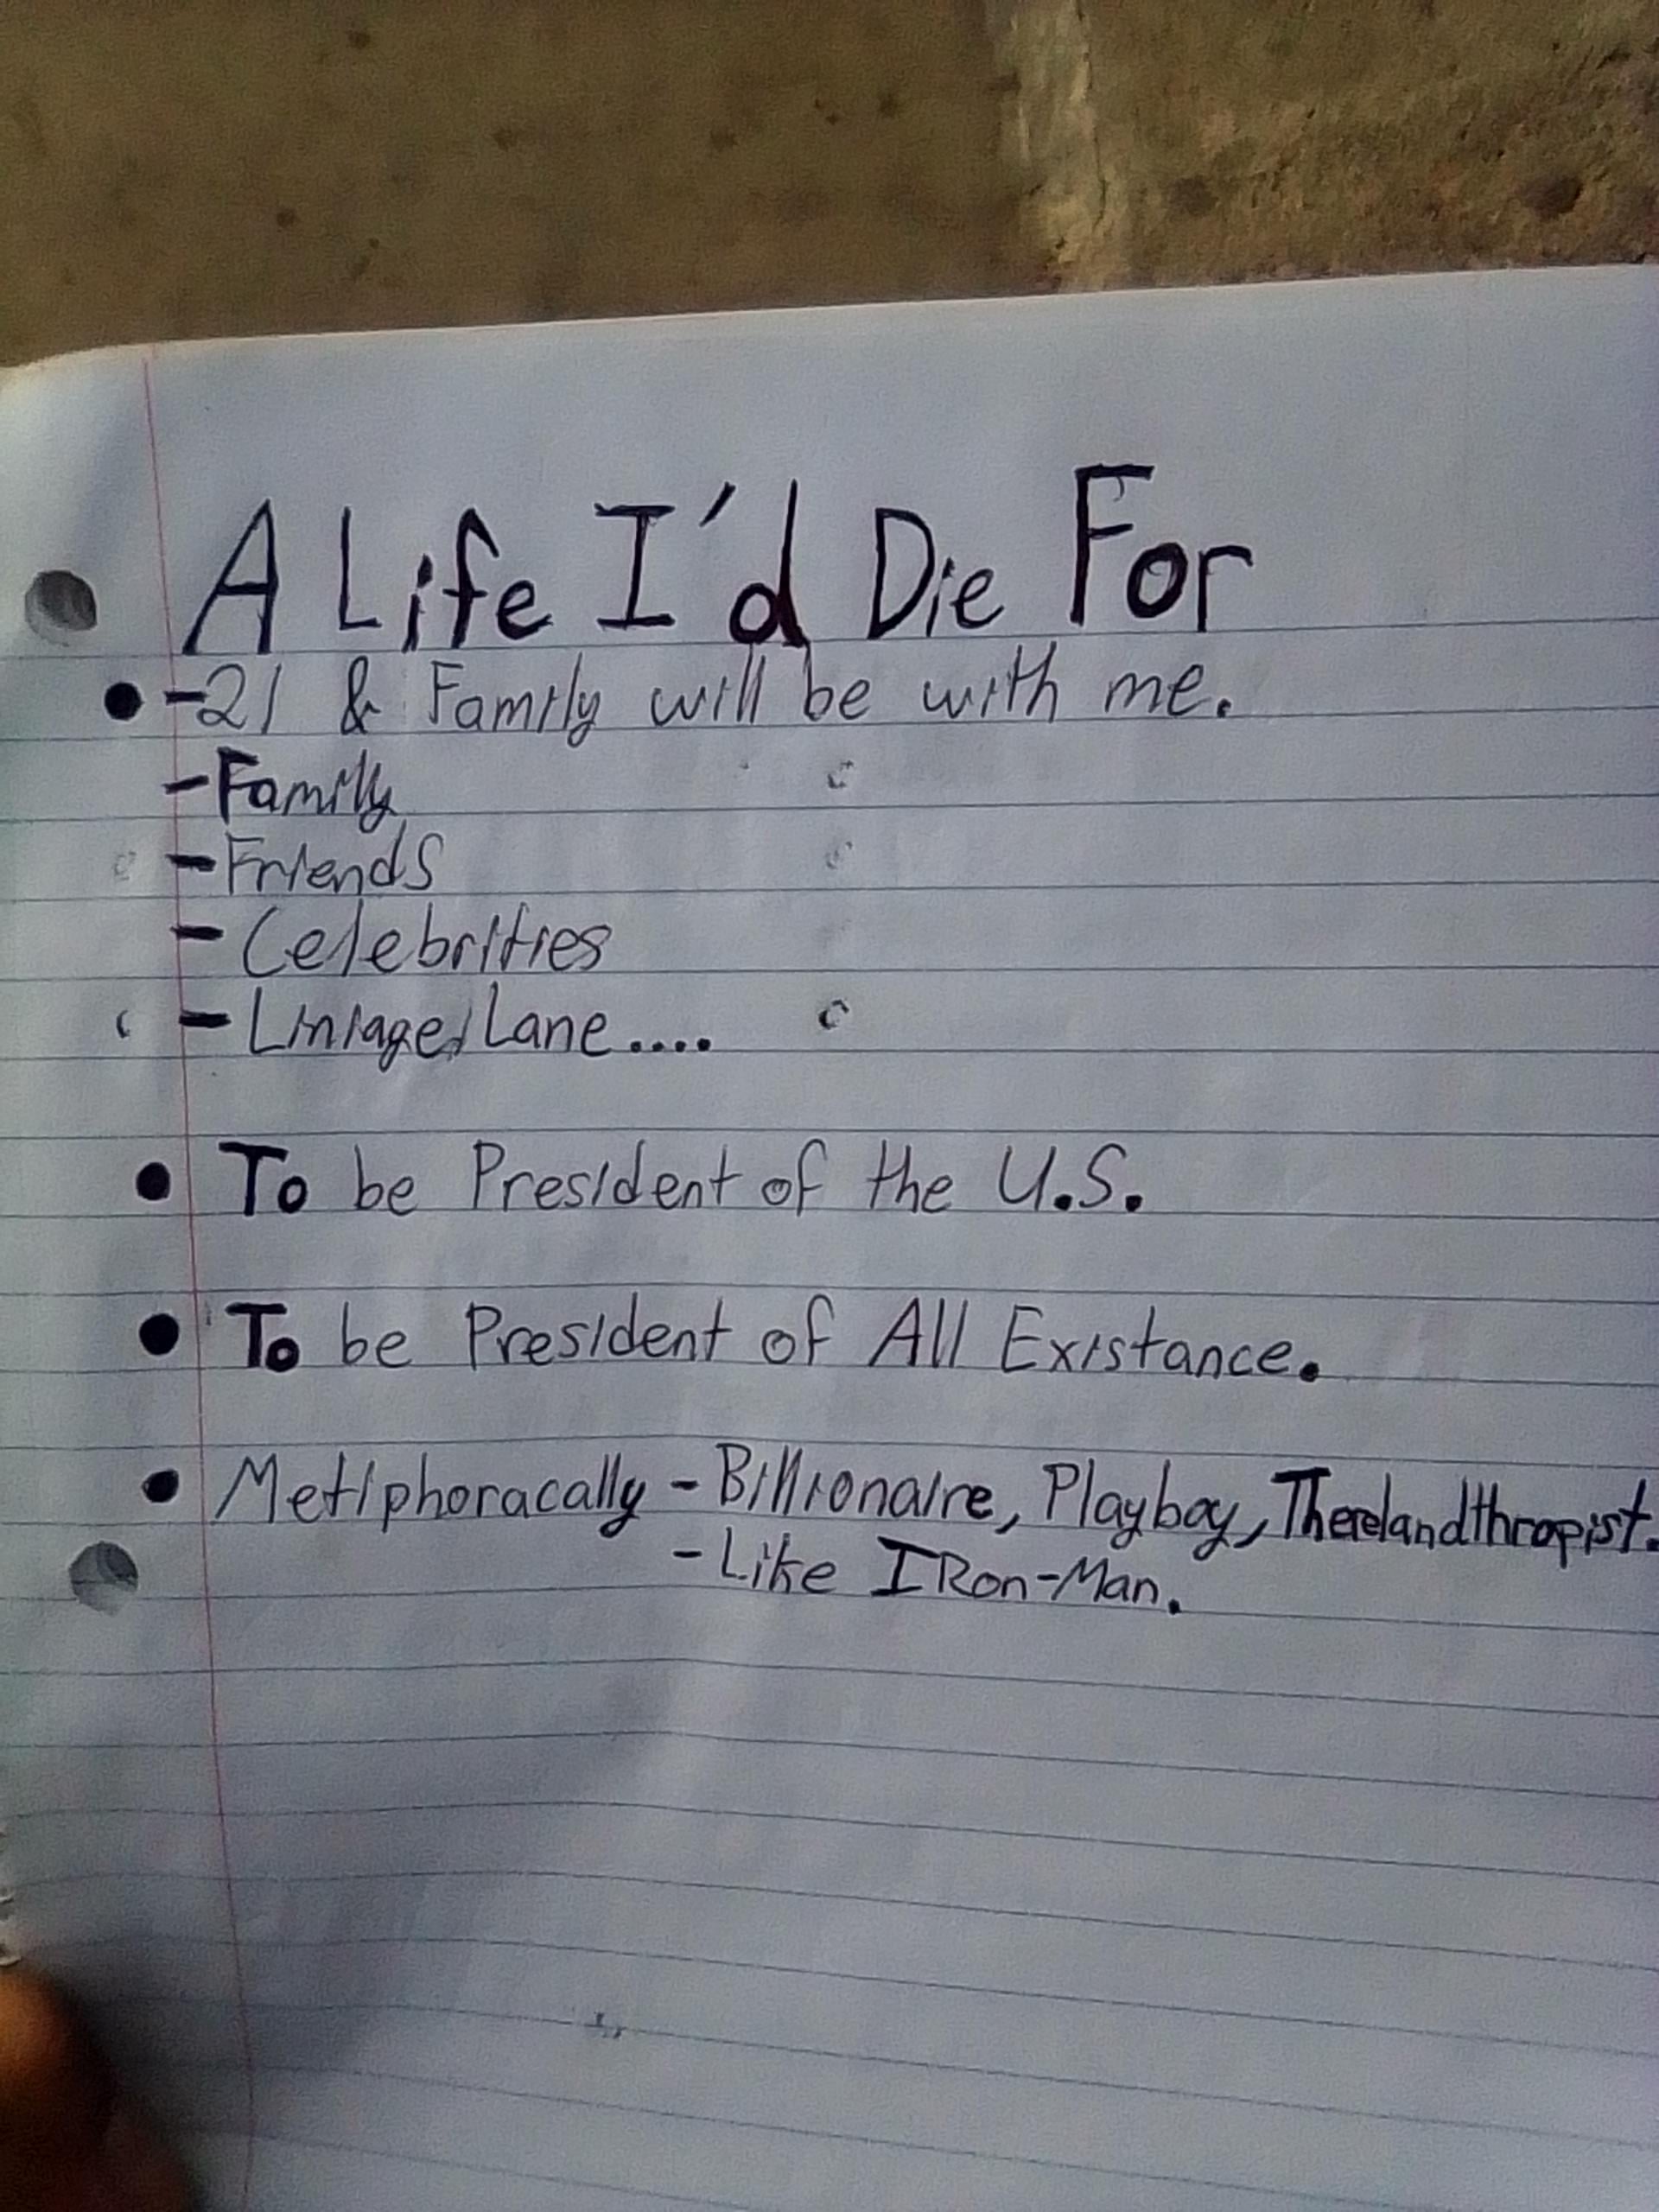 A Life I'd Die For
• -21 & Family will be with me.
- Family
- Friends
- Celebrities
- Liniage/Lane....
• To be President of the U.S.
• To be President of All Existance.
• Metiphoracally - Billionaire, Playboy, Therelandthropist.
- Like IRon-Man.